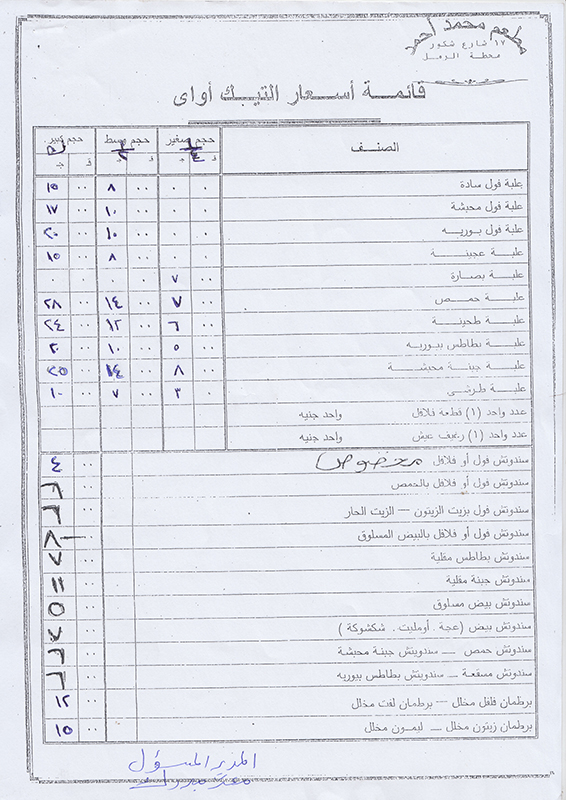 مطعم محمد أحمد
١٧ شارع شكور
محطة الرمل
قائمة أسعار التيك أواى
الصنف حجم صغير حجم وسط حجم كبير
ق ج ق ج ق ج
علبة فول سادة ٠ ٠ ٠٠ ٨ ٠٠ ١٥
علبة فول محبشة ٠ ٠ ٠٠ ١٠ ٠٠ ١٧
علبة فول بوريه ٠ ٠ ٠٠ ١٠ ٠٠ ٢٠
علبة عجينة ٠ ٠ ٠٠ ٨ ٠٠ ١٥
علبة بصارة ٠٠ ٧ ٠ ٠ ٠ ٠
علبة حمص ٠٠ ٧ ٠٠ ١٤ ٠٠ ٢٨
علبة طحينة ٠٠ ٦ ٠٠ ١٢ ٠٠ ٢٤
علبة بطاطس ببوريه ٠٠ ٥ ٠٠ ١٠ ٠٠ ٢٠
علبة جبنة محبشة ٠٠ ٨ ٠٠ ١٤ ٠٠
علبة طرشى ٠ ٣ ٠٠ ٧ ٠٠ ١٠
عدد واحد (١) قطعة فلافل واحد جنيه
عدد واحد (١) رغيف عيش واحد جنيه
سندوتش فول أو فلافل ٠٠ ٤
سندوتش فول أو فلافل بالحمص ٠٠ ٦
سندوتش فول بزيت الزيتون — الزيت الحار ٠٠ ٦
سندوتش فول أو فلافل بالبيض المسلوق ٠٠
سندوتش بطاطس مقلية ٠٠ ٧
سندوتش جبنة مقلية ٠٠ ١١
سندوتش بيض مسلوق ٠٠ ٥
سندوتش بيض (عجة . أومليت . شكشوكة) ٠٠ ٧
سندوتش حمص — سندويتش جبنة محبشة ٠٠ ٦
سندوتش مسقعة — سندويتش بطاطس ببوريه ٠٠ ٦
برطمان فلفل مخلل — برطمان لفت مخلل ٠٠ ١٢
برطمان زيتون مخلل — ليمون مخلل ٠٠ ١٥
المدير المسؤل